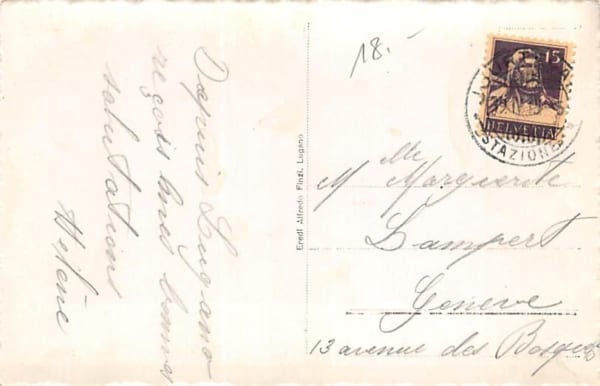 Depuis Lugano
reçois bnes bonnes
salutations
Hélène
Eredi Alfredo Finzi, Lugano
18.-
15
HELVETIA
STAZIONE
Mlle Marguerite
Lampert
Genève
13 avenue des Bosquets